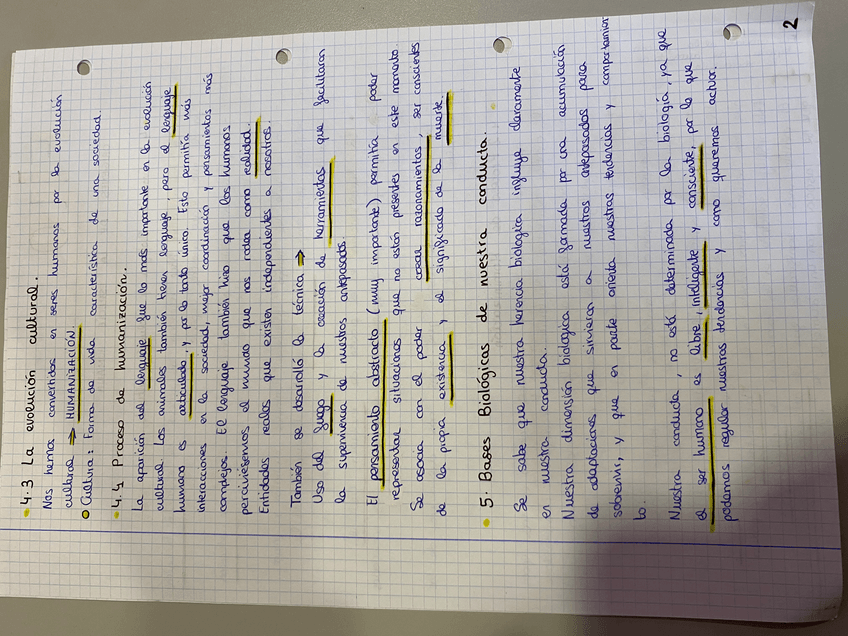 4.3 La evolución cultural.
Nos hemos convertidos en seres humanos por la evolución
cultural ⇒ HUMANIZACIÓN.
Cultura: Forma de vida característica de una sociedad.
4.4 Proceso de humanización.
La aparición del lenguaje fue lo más importante en la evolución
cultural. Los animales también tienen lenguaje, pero el lenguaje
humano es articulado, y por lo tanto único. Esto permitía más
interacciones en la sociedad, mejor coordinación y pensamientos más
complejos. El lenguaje también hizo que los humanos
percibiésemos el mundo que nos rodea como realidad.
Entidades reales que existen independientes a nosotros.
También se desarrolló la técnica ⇒
Uso del fuego y la creación de herramientas que facilitaron
la supervivencia de nuestros antepasados.
El pensamiento abstracto (muy importante) permitía poder
representar situaciones que no están presentes en este momento.
Se asocia con el poder crear razonamientos, ser conscientes
de la propia existencia y el significado de la muerte.
5. Bases Biológicas de nuestra conducta.
Se sabe que nuestra herencia biologica influye claramente
en nuestra conducta.
Nuestra dimensión biológica está formada por una acumulación
de adaptaciones que sirvieron a nuestros antepasados para
sobrevivir, y que en parte orienta nuestras tendencias y comportamien
to.
Nuestra conducta, no está determinada por la biología, ya que
el ser humano es libre, inteligente y consciente, por lo que
podemos regular nuestras tendencias y como queremos actuar.
2